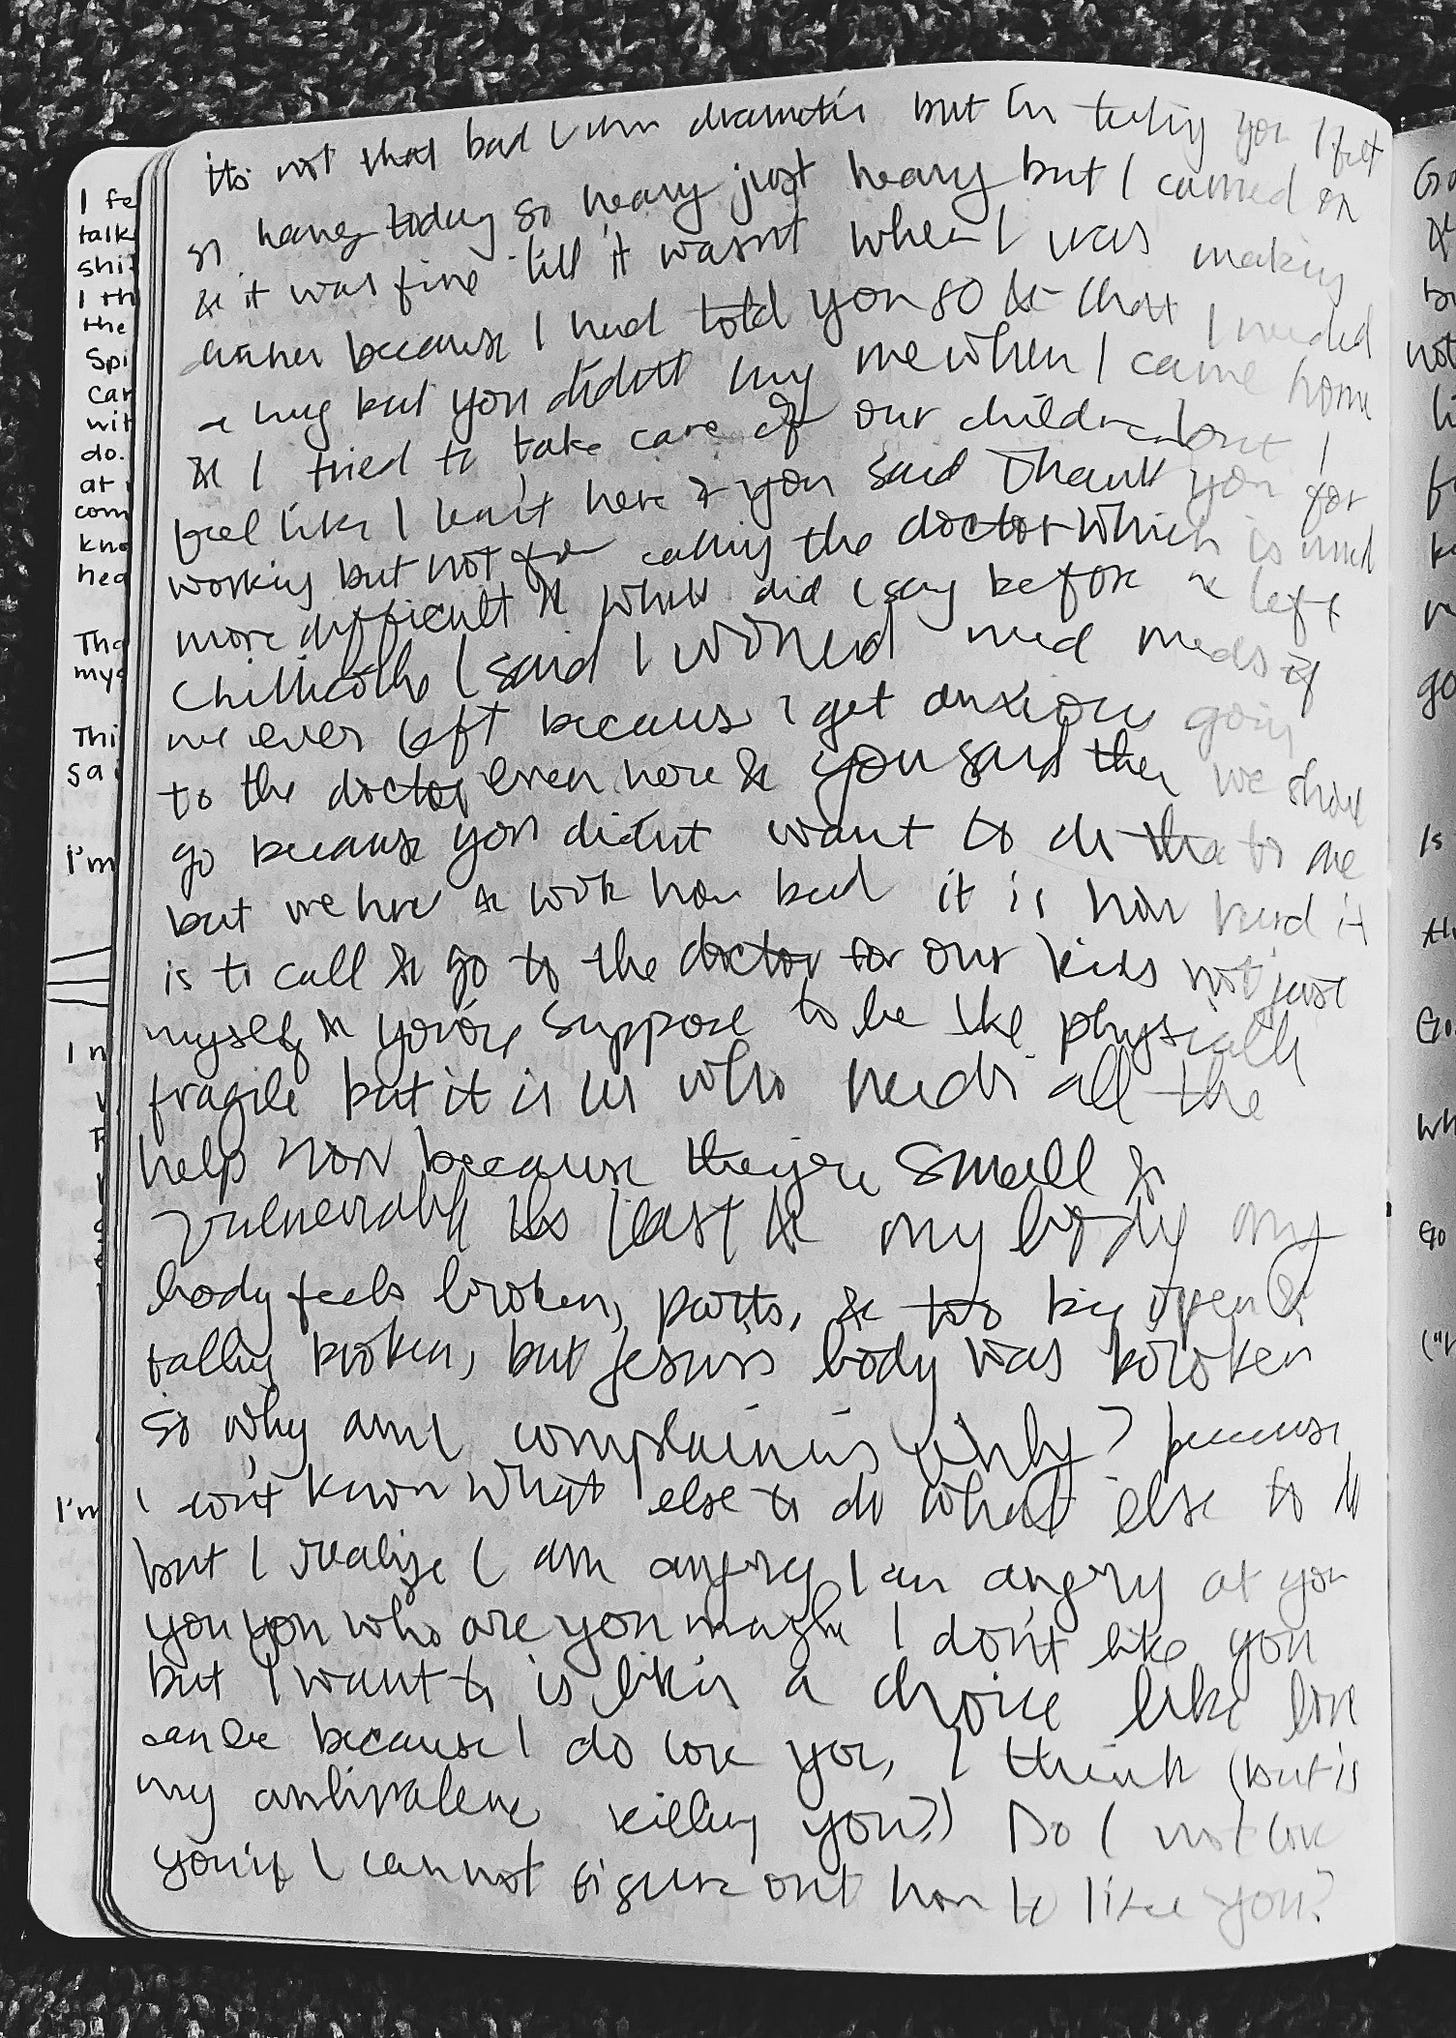 I fe
talk
shi
I th
the
Spi
Car
wit
do.
at
com
kno
hea
Tha
mys
Thi
sa
I'm
I n
I'm
its not that bad I am dramatic but Im telling you I felt
so heavy today so heavy just heavy but I carried on
& it was fine till it wasnt when I was making
dinner because I had told you so & that I needed
a hug but you didnt hug me when I came home
& I tried to take care of our children but I
feel like I can't here & you said Thank you for
working but not for calling the doctor which is much
more difficult & what did I say before we left
Chillicothe I said I would need meds if
we ever left because I get anxious going
to the doctor even here & you said then we should
go because you didnt want to do that to me
but we have & look how bad it is how hard it
is to call & go to the doctor for our kids not just
myself & you're suppose to be the physically
fragile but it is us who needs all the
help now because they're small &
vulnerable least & my body my
body feels broken, parts, & too big open &
falling broken, but Jesus's body was broken
so why am I complaining why? because
I don't know what else to do what else to do
but I realize I am angry I am angry at you
you you who are you maybe I don't like you
but I want to is liking a choice like love
can be because I do love you, I think (but is
my ambivalence killing you?) Do I not love
you if I cannot figure out how to like you?
not
go
Is
Go
("